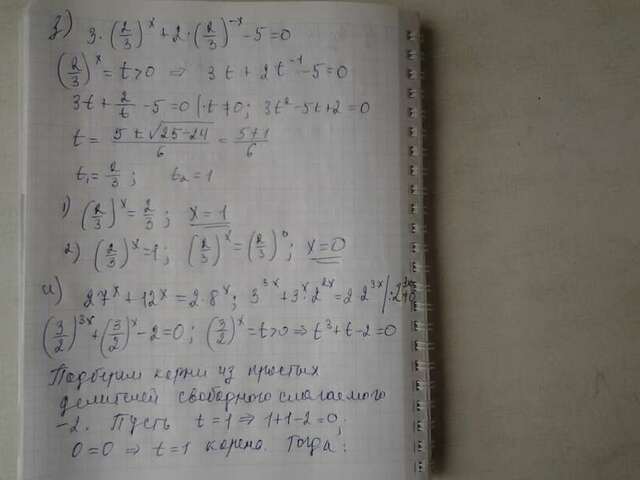 з) 3·(2/3)^x + 2·(2/3)^-x - 5 = 0
(2/3)^x = t > 0 ⇒ 3t + 2t^-1 - 5 = 0
3t + 2/t - 5 = 0 |·t ≠ 0; 3t² - 5t + 2 = 0
t = (5 ± √(25-24))/6 = (5±1)/6
t₁ = 2/3; t₂ = 1
1) (2/3)^x = 2/3; x = 1
2) (2/3)^x = 1; (2/3)^x = (2/3)^0; x = 0
и) 27^x + 12^x = 2·8^x; 3^3x + 3^x·2^2x = 2·2^3x |:2^3x ≠ 0
(3/2)^3x + (3/2)^x - 2 = 0; (3/2)^x = t > 0 ⇒ t³ + t - 2 = 0
Подберем корни из простых
делителей свободного слагаемого
-2. Пусть t = 1 ⇒ 1+1-2 = 0;
0 = 0 ⇒ t = 1 корень. Тогда: